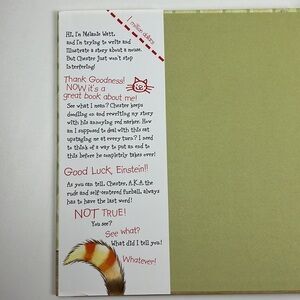 1 million dollars
Hi, I'm Melanie Watt,
and I'm trying to write and
illustrate a story about a mouse.
But Chester just won't stop
interfering!
Thank Goodness!
NOW it's a
great book about me!
See what I mean? Chester keeps
doodling on and rewriting my story
with his annoying red marker. How
am I supposed to deal with this cat
upstaging me at every turn? I need
to think of a way to put an end to
this before he completely takes over!
Good Luck, Einstein!!
As you can tell, Chester, A.K.A. the
rude and self-centered furball, always
has to have the last word!
NOT TRUE!
You see?
See what?
What did I tell you!
Whatever!